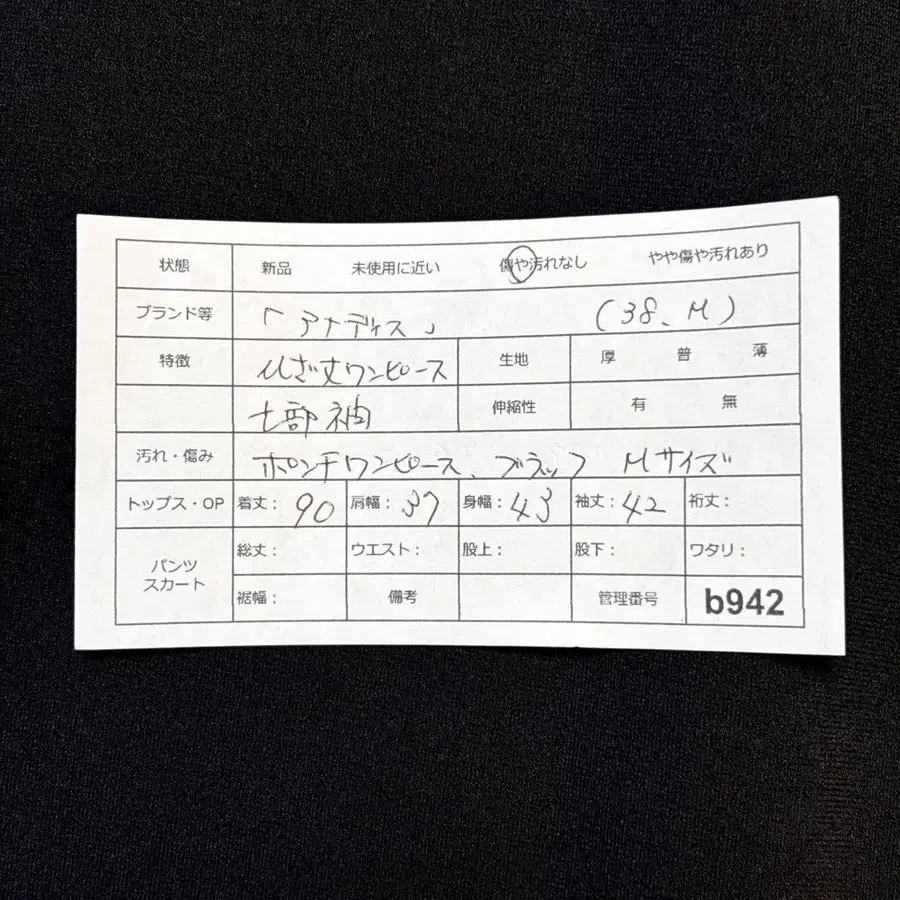 状態 新品 未使用に近い 傷や汚れなし やや傷や汚れあり
ブランド等 「アナディス」 (38、M)
特徴 ひざ丈ワンピース 生地 厚 普 薄
七部袖 伸縮性 有 無
汚れ・傷み ポンチワンピース、ブラック Mサイズ
トップス・OP 着丈: 90 肩幅: 37 身幅: 43 袖丈: 42 裄丈:
パンツ スカート 総丈: ウエスト: 股上: 股下: ワタリ:
裾幅: 備考 管理番号 b942